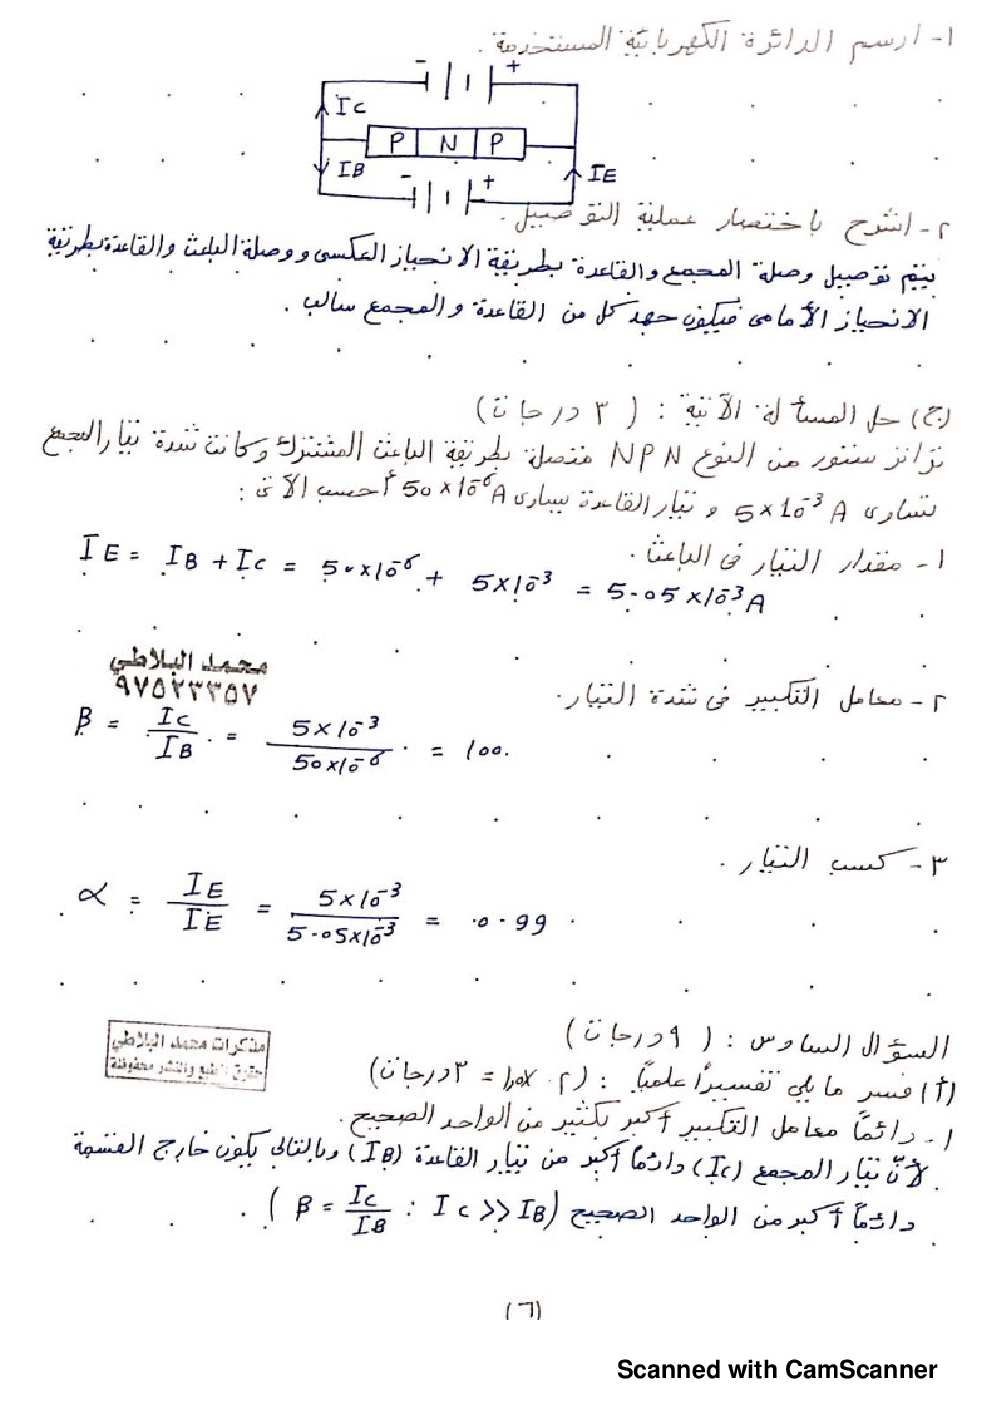 ١- ارسم الدائرة الكهربائية المستخدمة.
- +
IC
P N P
IB
- +
IE
٢- اشرح باختصار عملية التوصيل.
يتم توصيل وصلة المجمع والقاعدة بطريقة الانحياز العكسى ووصلة الباعث والقاعدة بطريقة
الانحياز الأمامى فيكون جهد كل من القاعدة والمجمع سالب.
(ج) حل المسألة الآتية : (٣ درجات)
ترانزستور من النوع NPN متصلة بطريقة الباعث المشترك وكانت شدة تيار المجمع
تساوى 5×10⁻³ A و تيار القاعدة يساوى 50×10⁻⁶ A أحسب الآتى :
١- مقدار التيار فى الباعث.
IE = IB + IC = 50×10⁻⁶ + 5×10⁻³ = 5.05×10⁻³ A
محمد البلاطي
٩٧٥٢٣٣٥٧
٢- معامل التكبير فى شدة التيار.
β = IC / IB = 5×10⁻³ / 50×10⁻⁶ = 100
٣- كسب التيار.
α = IE / IE = 5×10⁻³ / 5.05×10⁻³ = 0.99
السؤال السادس : (٩ درجات)
مذكرات محمد البلاطي
حقوق الطبع والنشر محفوظة
(أ) فسر ما يلي تفسيرًا علميًا : (٢ × ١,٥ = ٣ درجات)
١- دائمًا معامل التكبير أكبر بكثير من الواحد الصحيح.
لأنّ تيار المجمع (IC) دائمًا أكبر من تيار القاعدة (IB) وبالتالي يكون خارج القسمة
دائمًا أكبر من الواحد الصحيح (β = IC / IB : IC >> IB)
(٦)
Scanned with CamScanner